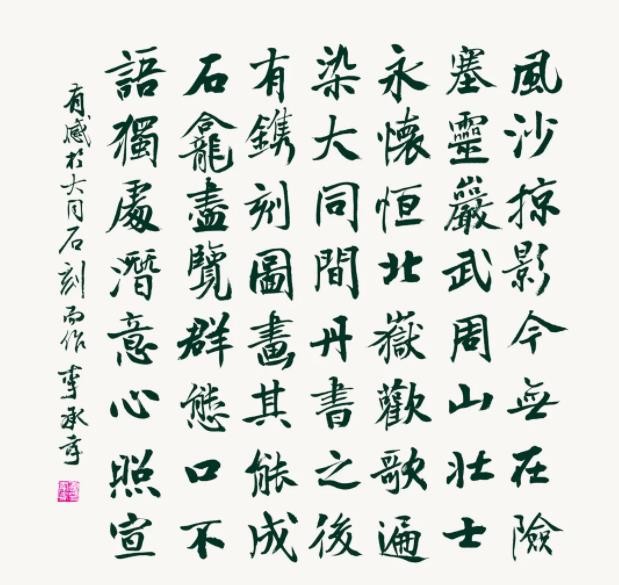 風沙掠影今無在險
塞靈巖武周山壯士
永懷恒北嶽歡歌遍
染大同間丹書之後
有鐫刻圖畫其能成
石龕盡覽群態口不
語獨處潛意心照宣
有感於大同石刻而作 李承